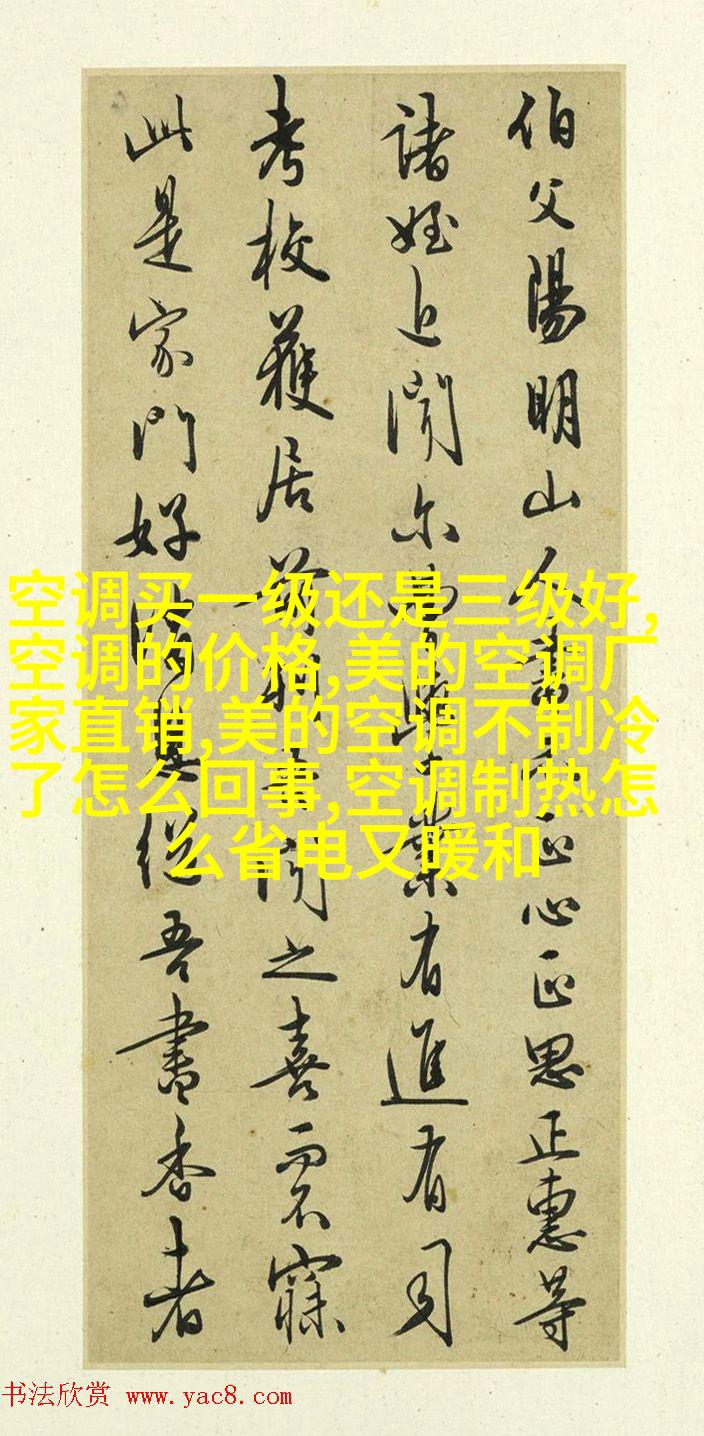 伯父陽明山人書示正心正思正惠等
諸姪近聞尔曹學業有進有司
考校獲居前列吾聞之喜而不寐
此是家門好消息繼吾書香者
空调买一级还是三级好,
空调的价格,美的空调厂
家直销,美的空调不制冷
了怎么回事,空调制热怎
么省电又暖和
书法欣赏 www.yac8.com